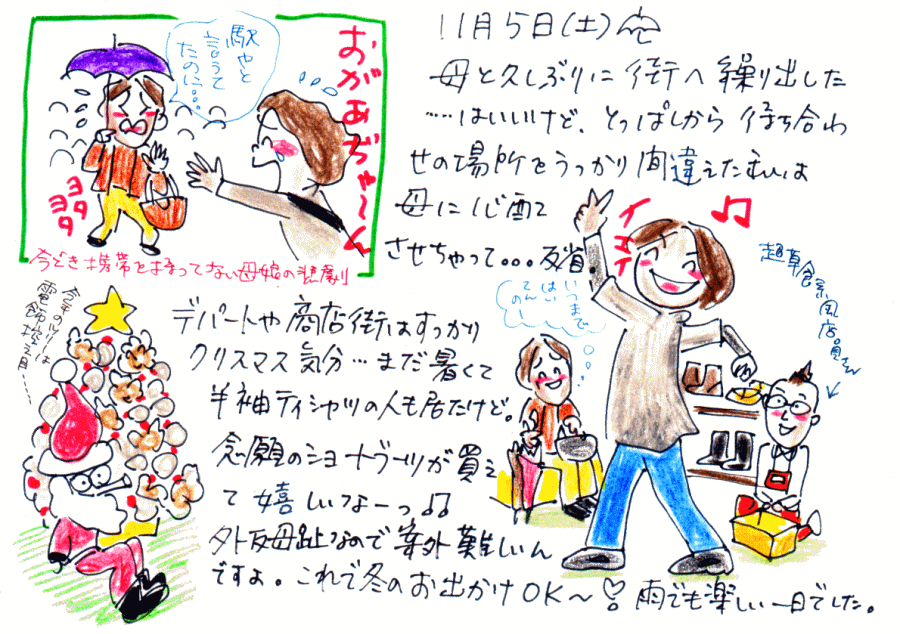 11月5日(土)
母と久しぶりに街へ繰り出した
……はいいけど、とっぱしから待ち合わ
せの場所をうっかり間違えたむすめは
母に心配
させちゃって。。。反省
おがあぢゃ〜ん
駅やと
言うて
たのに…
ヨタ
ヨタ
今どき携帯をもってない母娘の悲劇
今年のツリーは
電飾控え目……
デパートや商店街はすっかり
クリスマス気分…まだ暑くて
半袖ティシャツの人も居だけど。
念願のショートブーツが買え
て嬉しいなーっ♪♪
外反母趾なので案外難しいん
ですよ。これで冬のお出かけOK〜♡。雨でも楽しい一日でした。
イエーイ
♫
いつまで
はい
てんのー
超草食系風店員さん